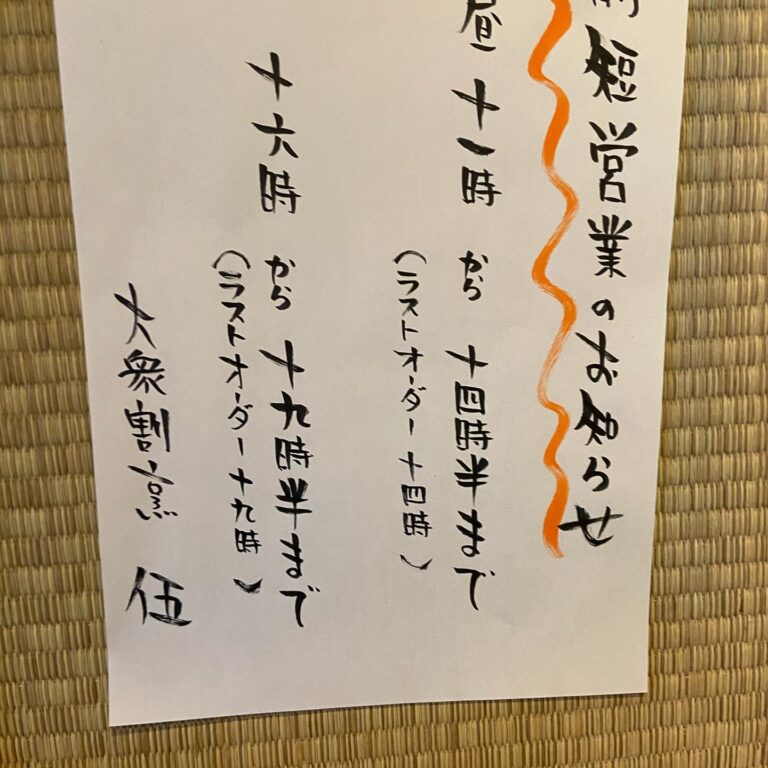 短営業のお知らせ
昼 十一時 から 十四時半まで
(ラストオーダー十四時)
十六時 から 十九時半まで
(ラストオーダー十九時)
大衆割烹 伍